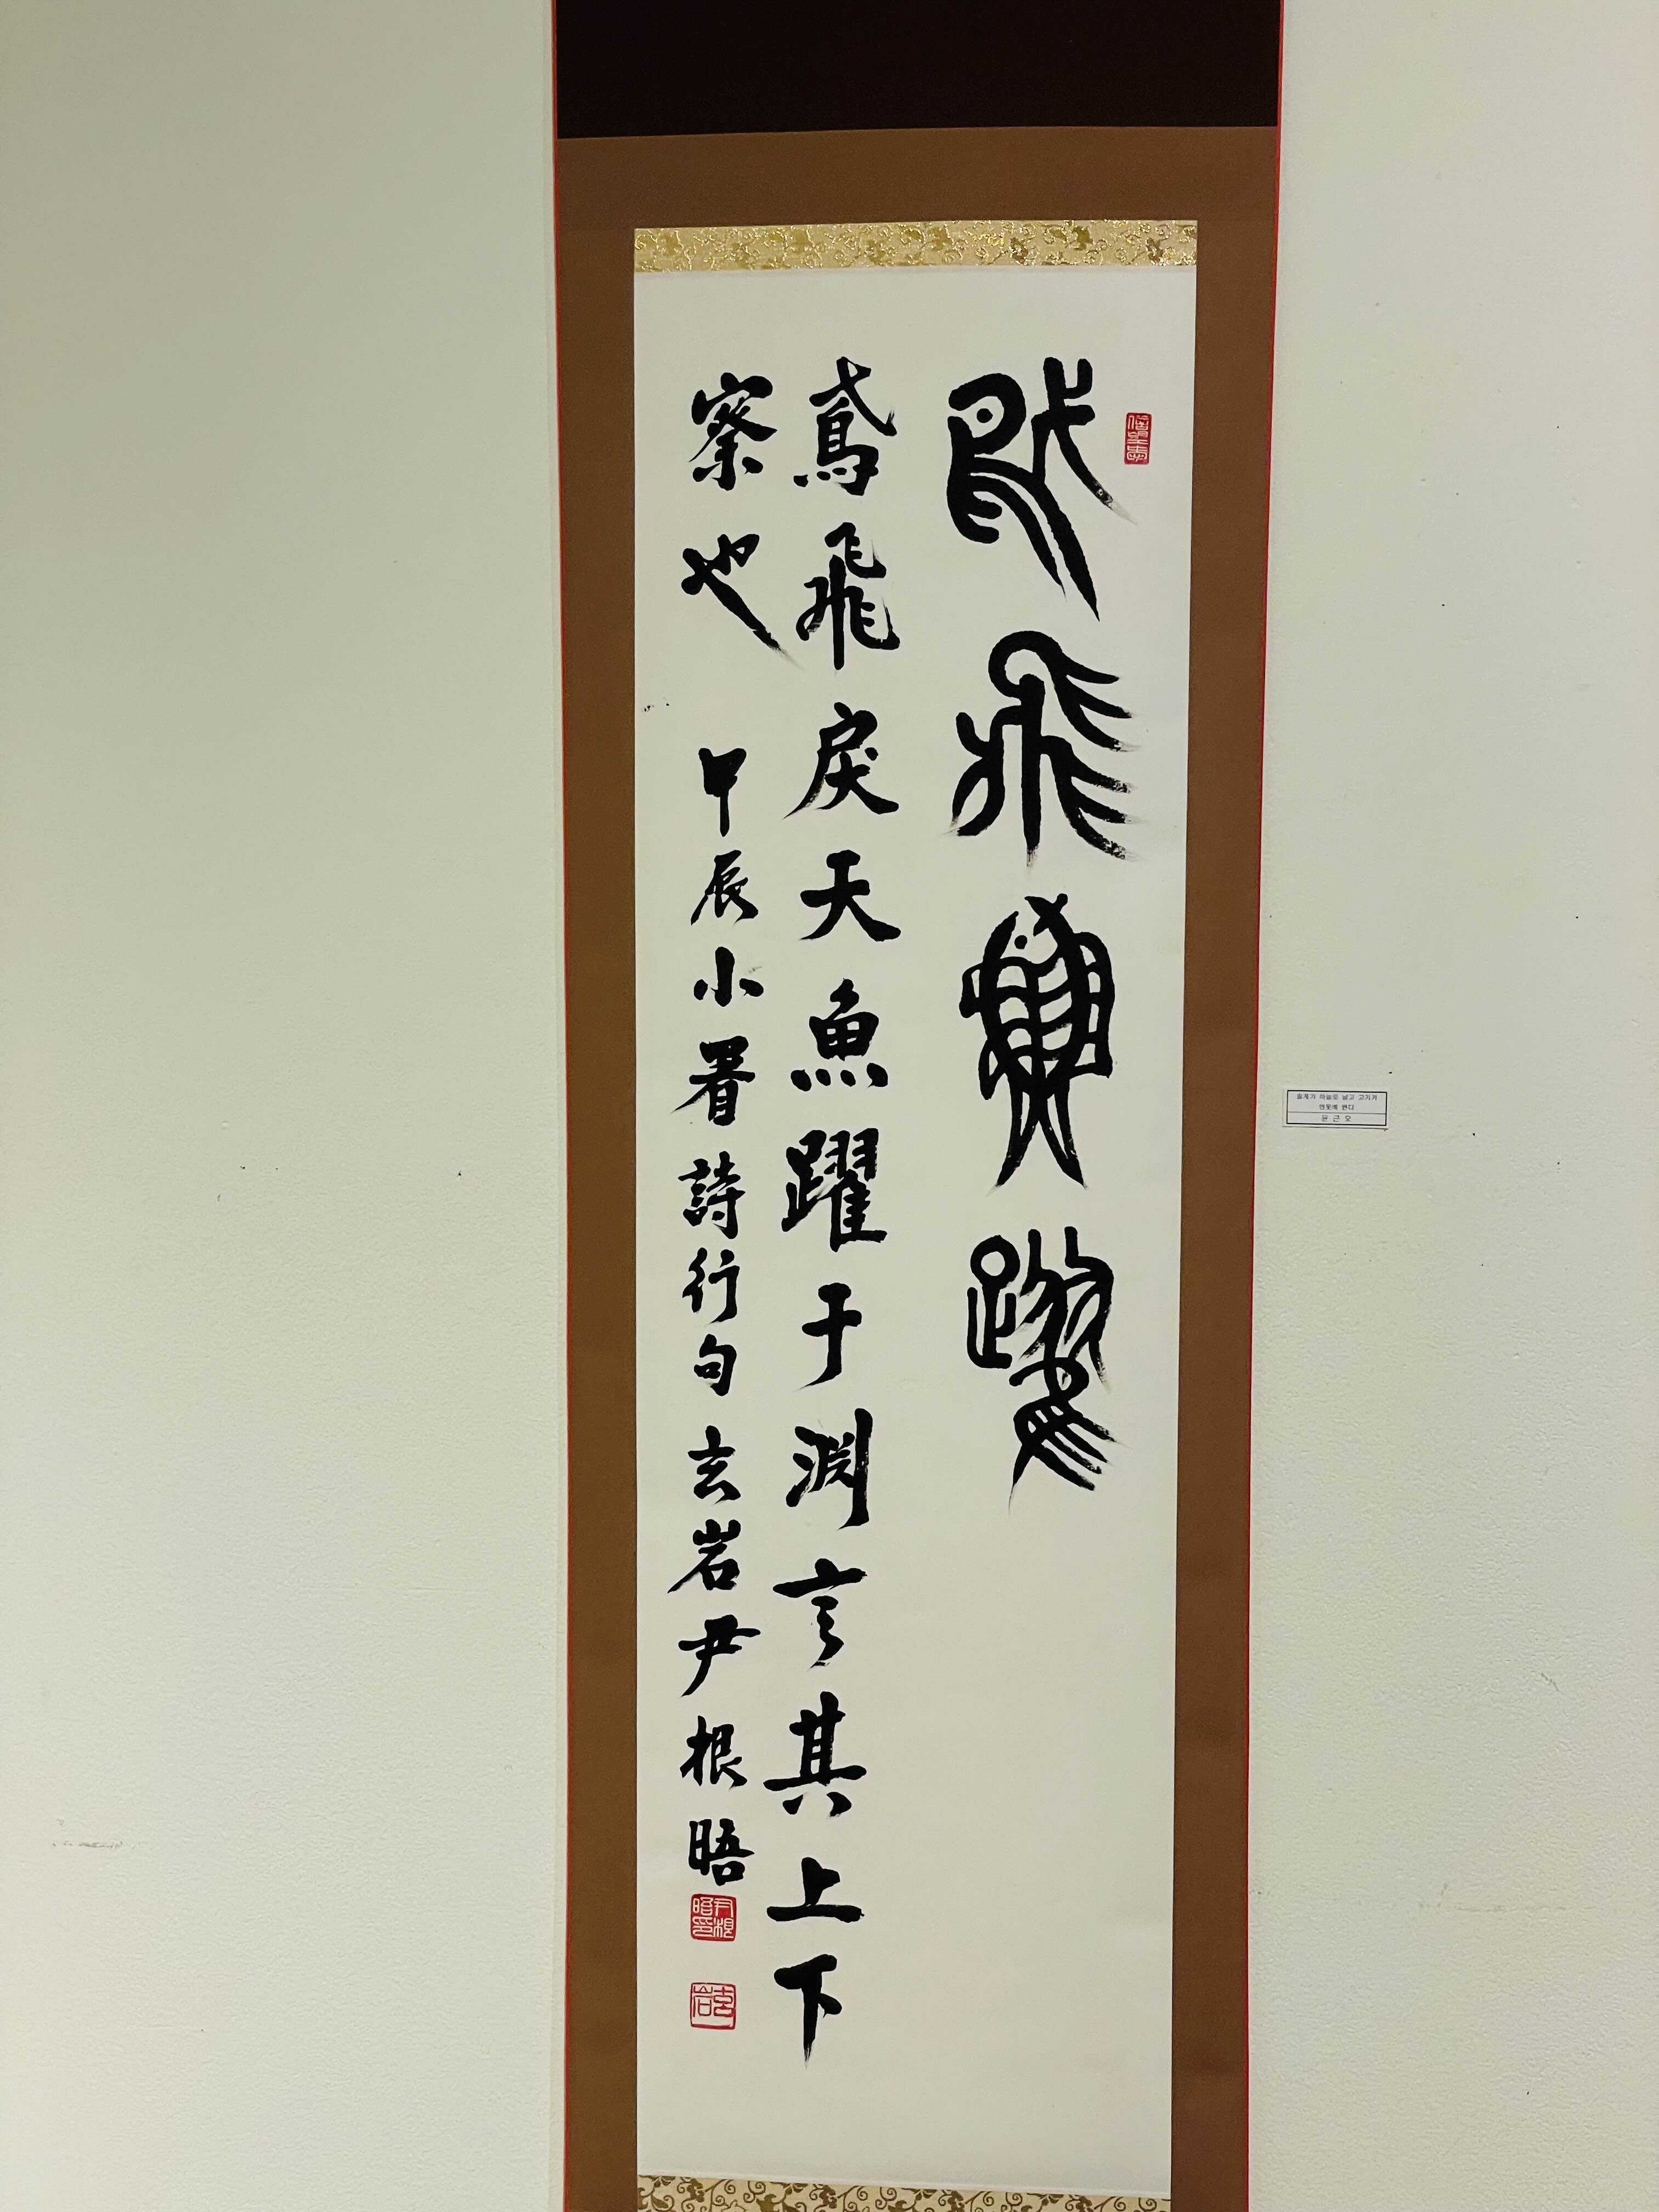 鳶飛魚躍
鳶飛戾天魚躍于淵言其上下
察也 甲辰小暑詩行句 玄岩尹根晤
尹根晤印
玄岩
솔개가 하늘로 날고 고기가
연못에 뛴다
윤 근 오